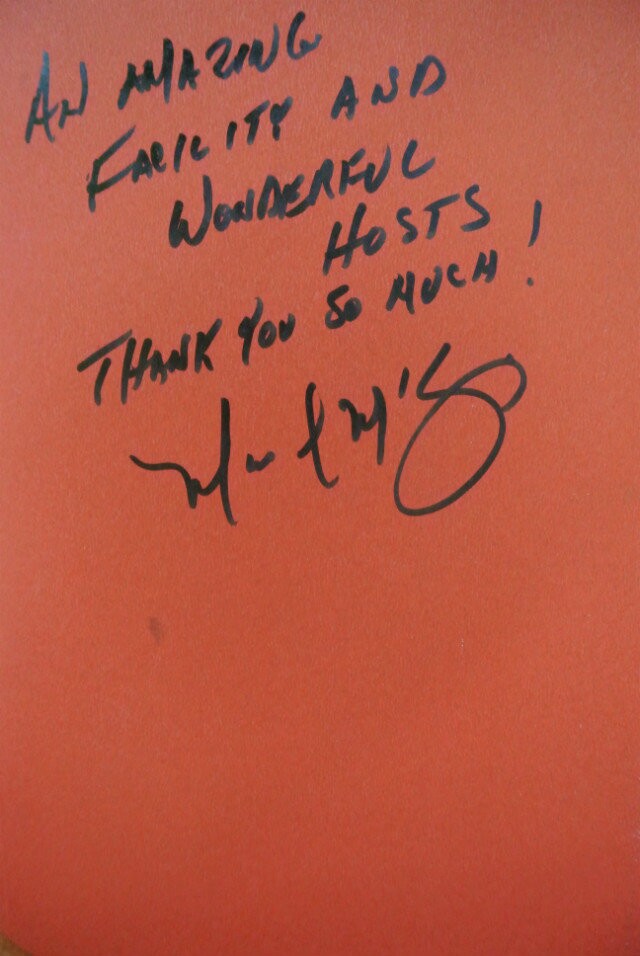 AN AMAZING
FACILITY AND
WONDERFUL
HOSTS
THANK YOU SO MUCH!